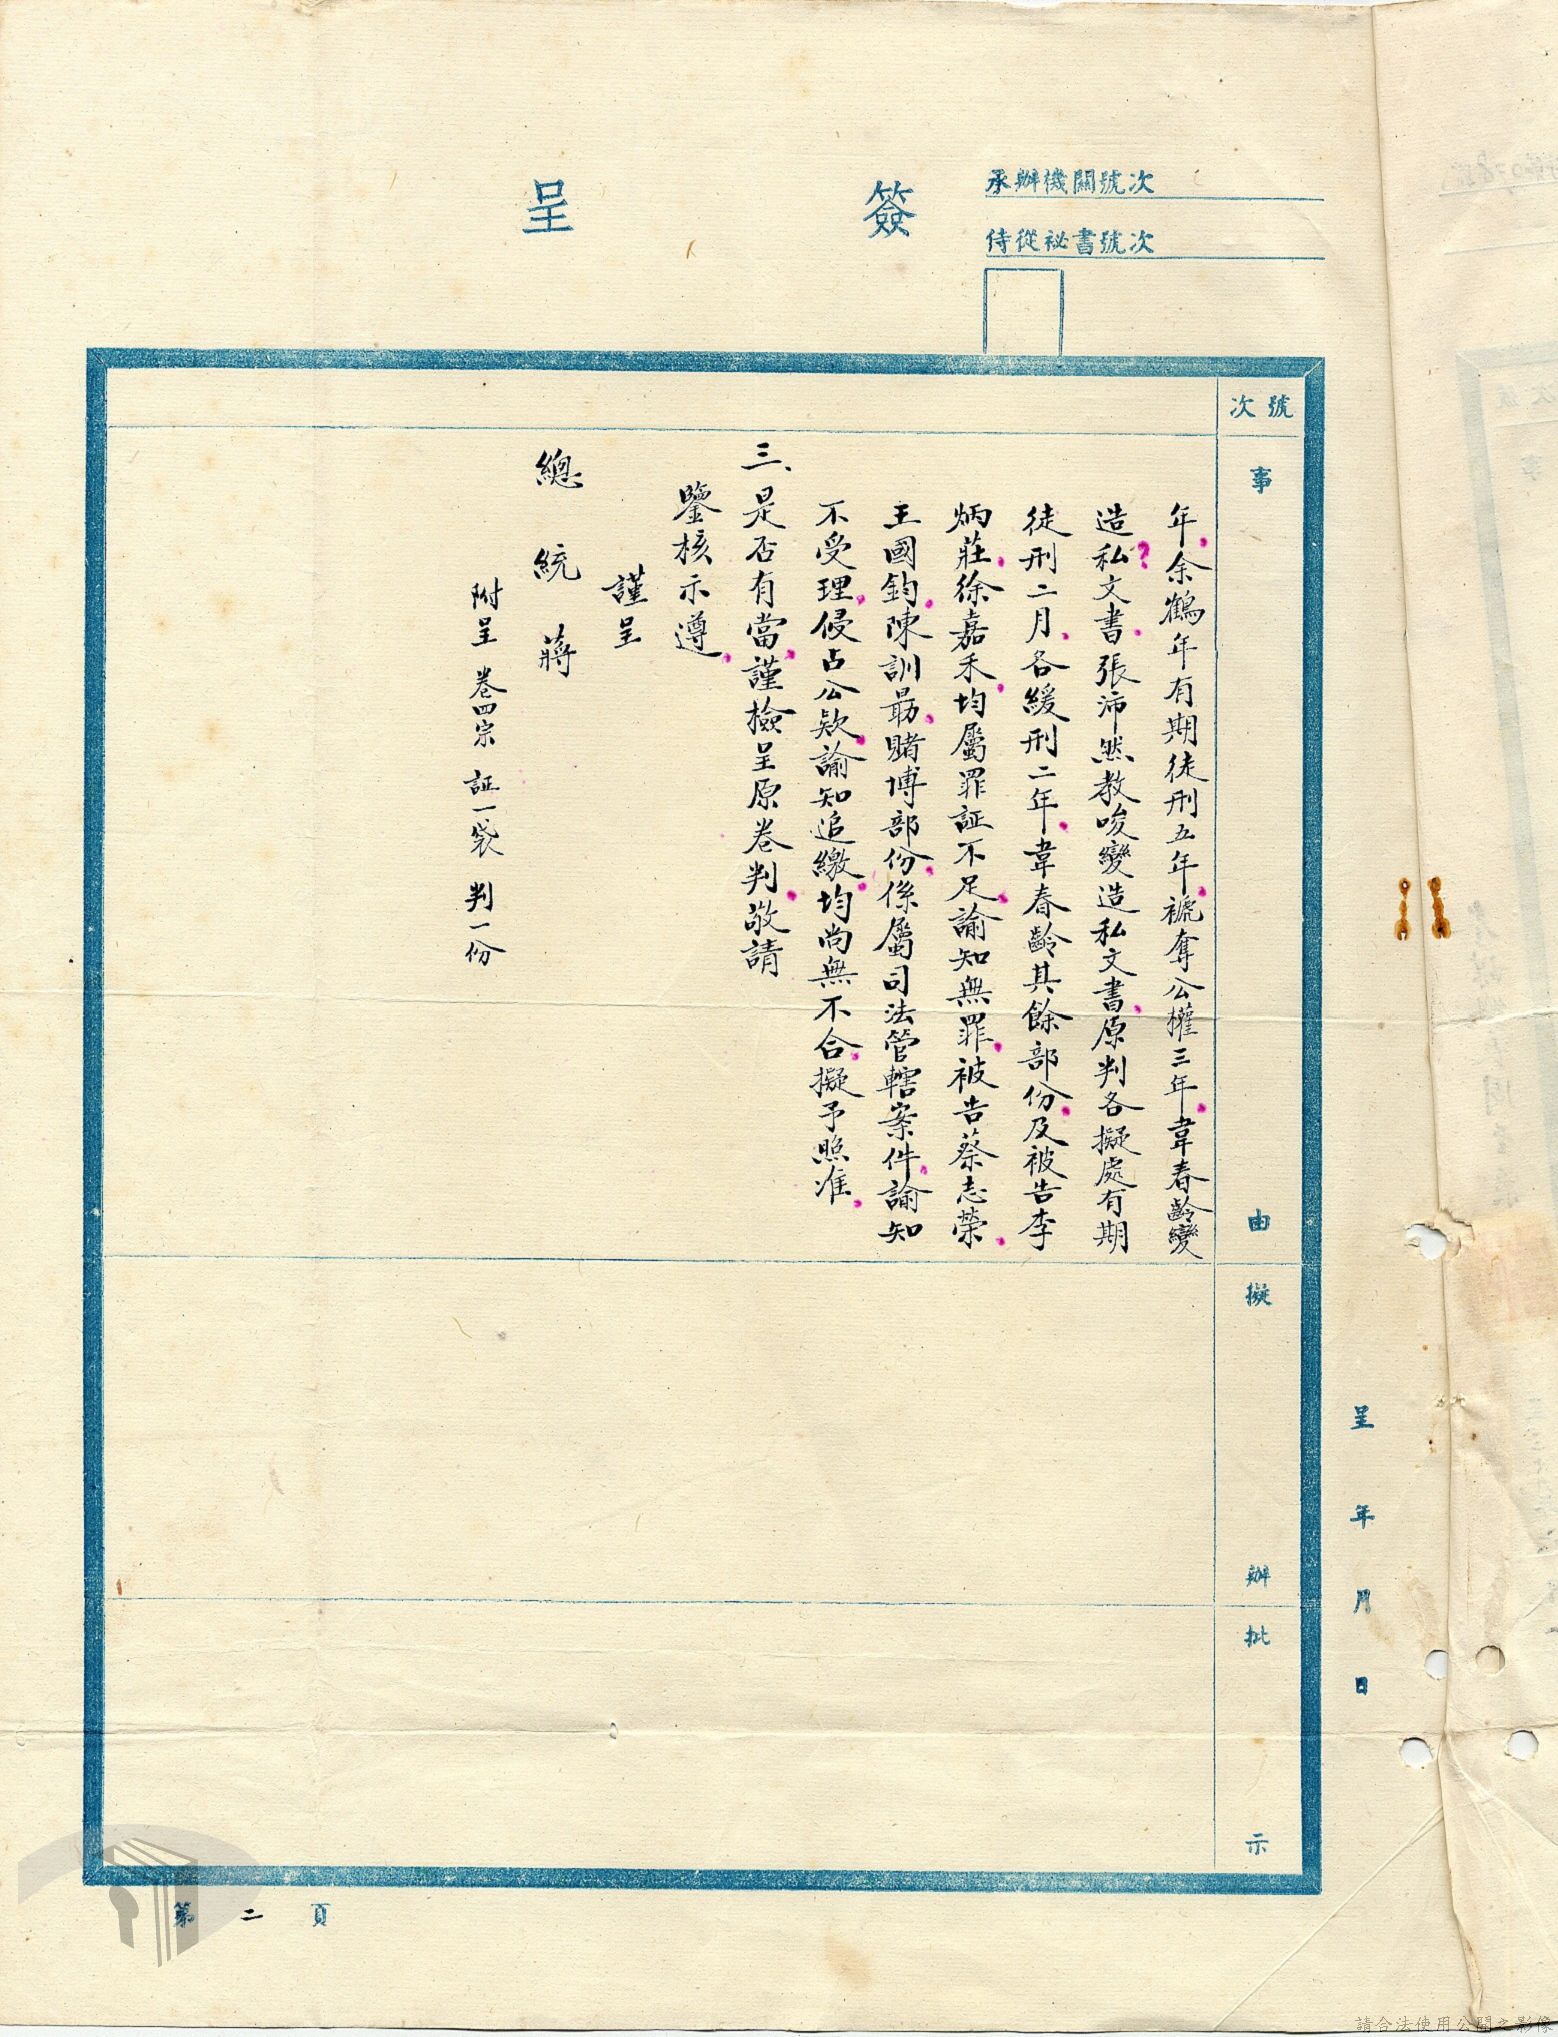 承辦機關號次
侍從祕書號次
簽呈
號次
事由
擬辦
批示
呈 年 月 日
年余鶴年有期徒刑五年褫奪公權三年韋春齡變
造私文書張沛然教唆變造私文書原判各擬處有期
徒刑二月各緩刑二年韋春齡其餘部份及被告李
炳莊徐嘉禾均屬罪証不足諭知無罪被告蔡志榮
王國鈞陳訓勗賭博部份係屬司法管轄案件諭知
不受理侵占公欵諭知追繳均尚無不合擬予照准
三、是否有當謹檢呈原卷判敬請
鑒核示遵
謹呈
總統 蔣
附呈卷四宗 証一袋 判一份
第二頁
請合法使用公開之影像